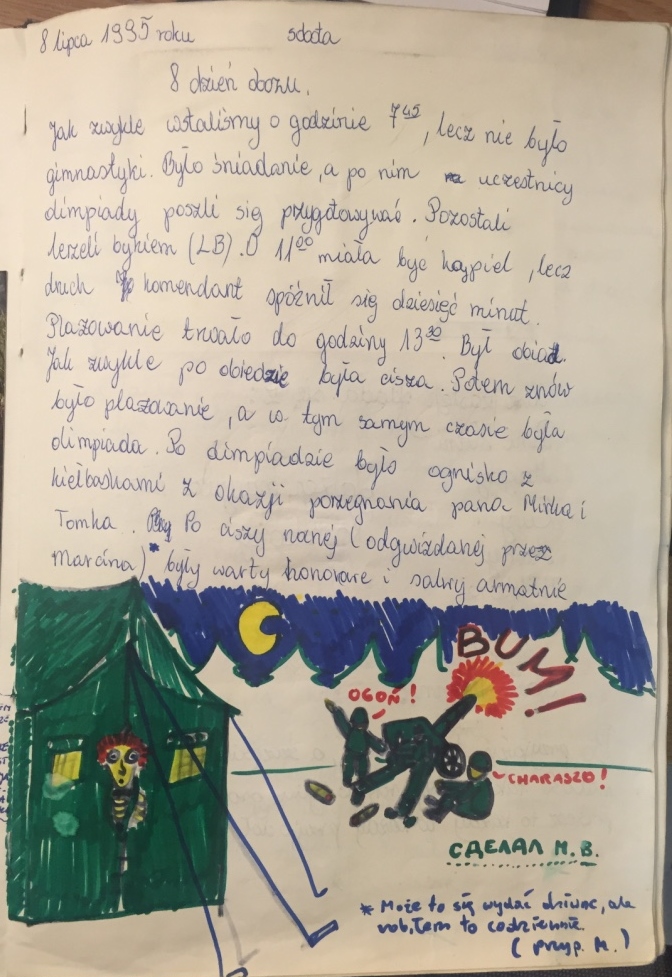 8 lipca 1995 roku sobota
8 dzień obozu.
Jak zwykle wstaliśmy o godzinie 7 45, lecz nie było
gimnastyki. Było śniadanie, a po nim uczestnicy
olimpiady poszli się przygotowywać. Pozostali
lerzeli bykiem (LB). O 11 00 miała być kąpiel, lecz
druch komendant spóźnił się dziesięć minut.
Plażowanie trwało do godziny 13 30. Był obiad.
Jak zwykle po obiedzie była cisza. Potem znów
było plażowanie, a w tym samym czasie była
olimpiada. Po olimpiadzie było ognisko z
kiełbaskami z okazji porzegnania pana Mirka i
Tomka. Po ciszy nocnej (odgwizdanej przez
Marcina)* były warty honorowe i salwy armatnie
BUM!
OGOŃ!
CHARASZO!
СДЕЛАЛ М.В.
* Może to się wydać dziwne, ale
robiłem to codziennie.
(przyp. M.)